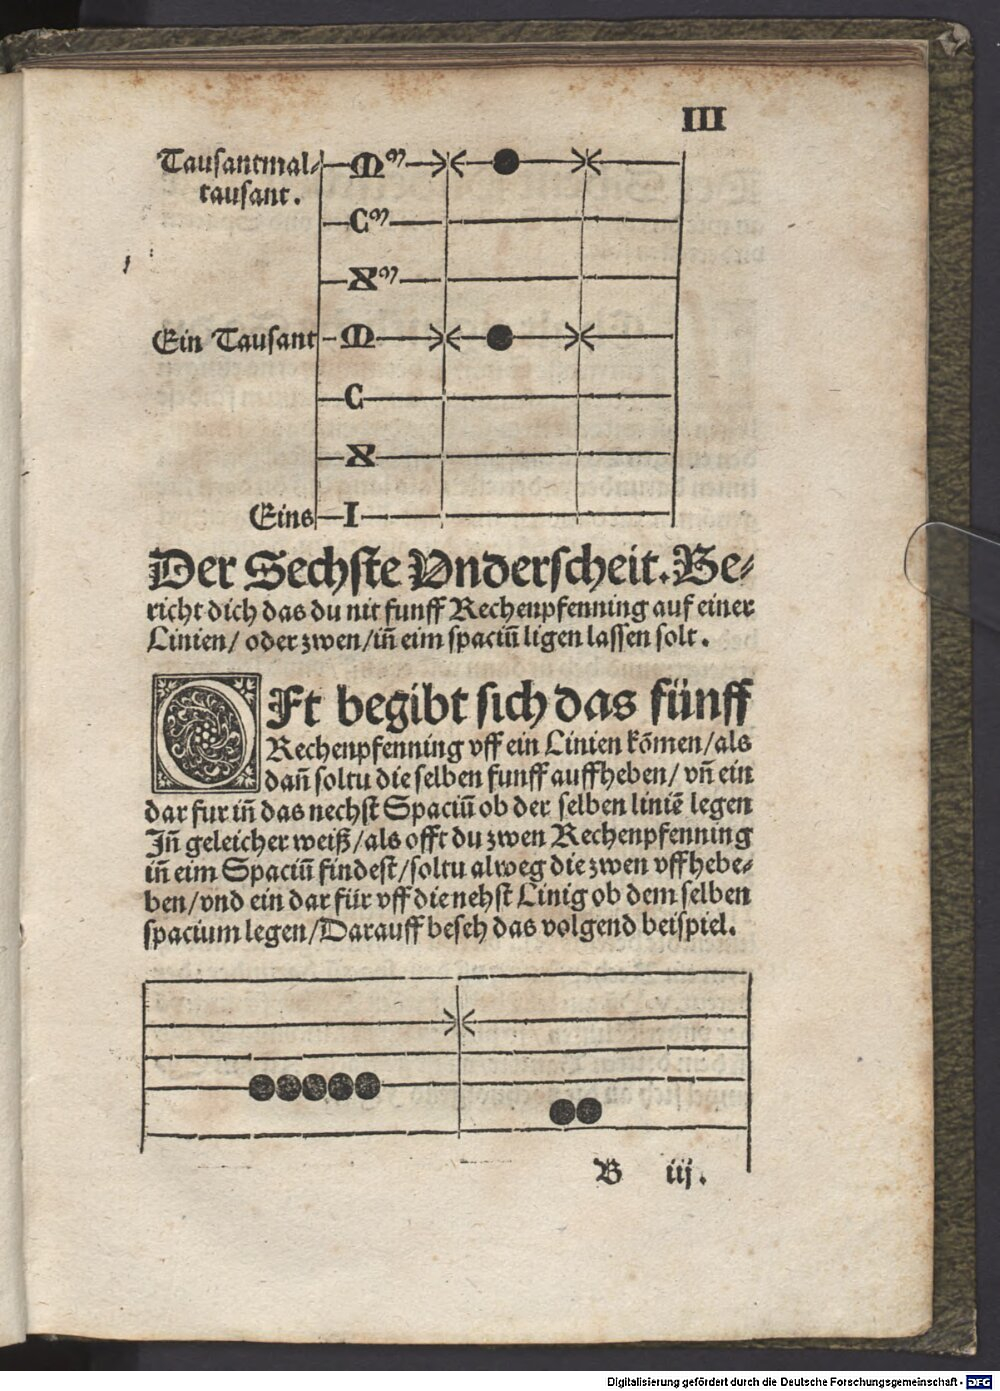 III
Tausantmal⸗ M^m
tausant.
C^m
X^m
Ein Tausant M
C
X
Eins I
Der Sechste Vnderscheit. Be⸗
richt dich das du nit funff Rechenpfenning auf einer
Linien/ oder zwen/ iñ eim spaciũ ligen lassen solt.
OFt begibt sich das fünff
Rechenpfenning vff ein Linien kõmen/ als
dañ soltu die selben funff auffheben/ vñ ein
dar fur iñ das nechst Spaciũ ob der selben liniẽ legen
Iñ geleicher weiß/ als offt du zwen Rechenpfenning
iñ eim Spaciũ findest/ soltu alweg die zwen vffhebe⸗
ben/ vnd ein dar für vff die nehst Linig ob dem selben
spacium legen/ Darauff beseh das volgend beispiel.
B iij.
Digitalisierung gefördert durch die Deutsche Forschungsgemeinschaft - DFG